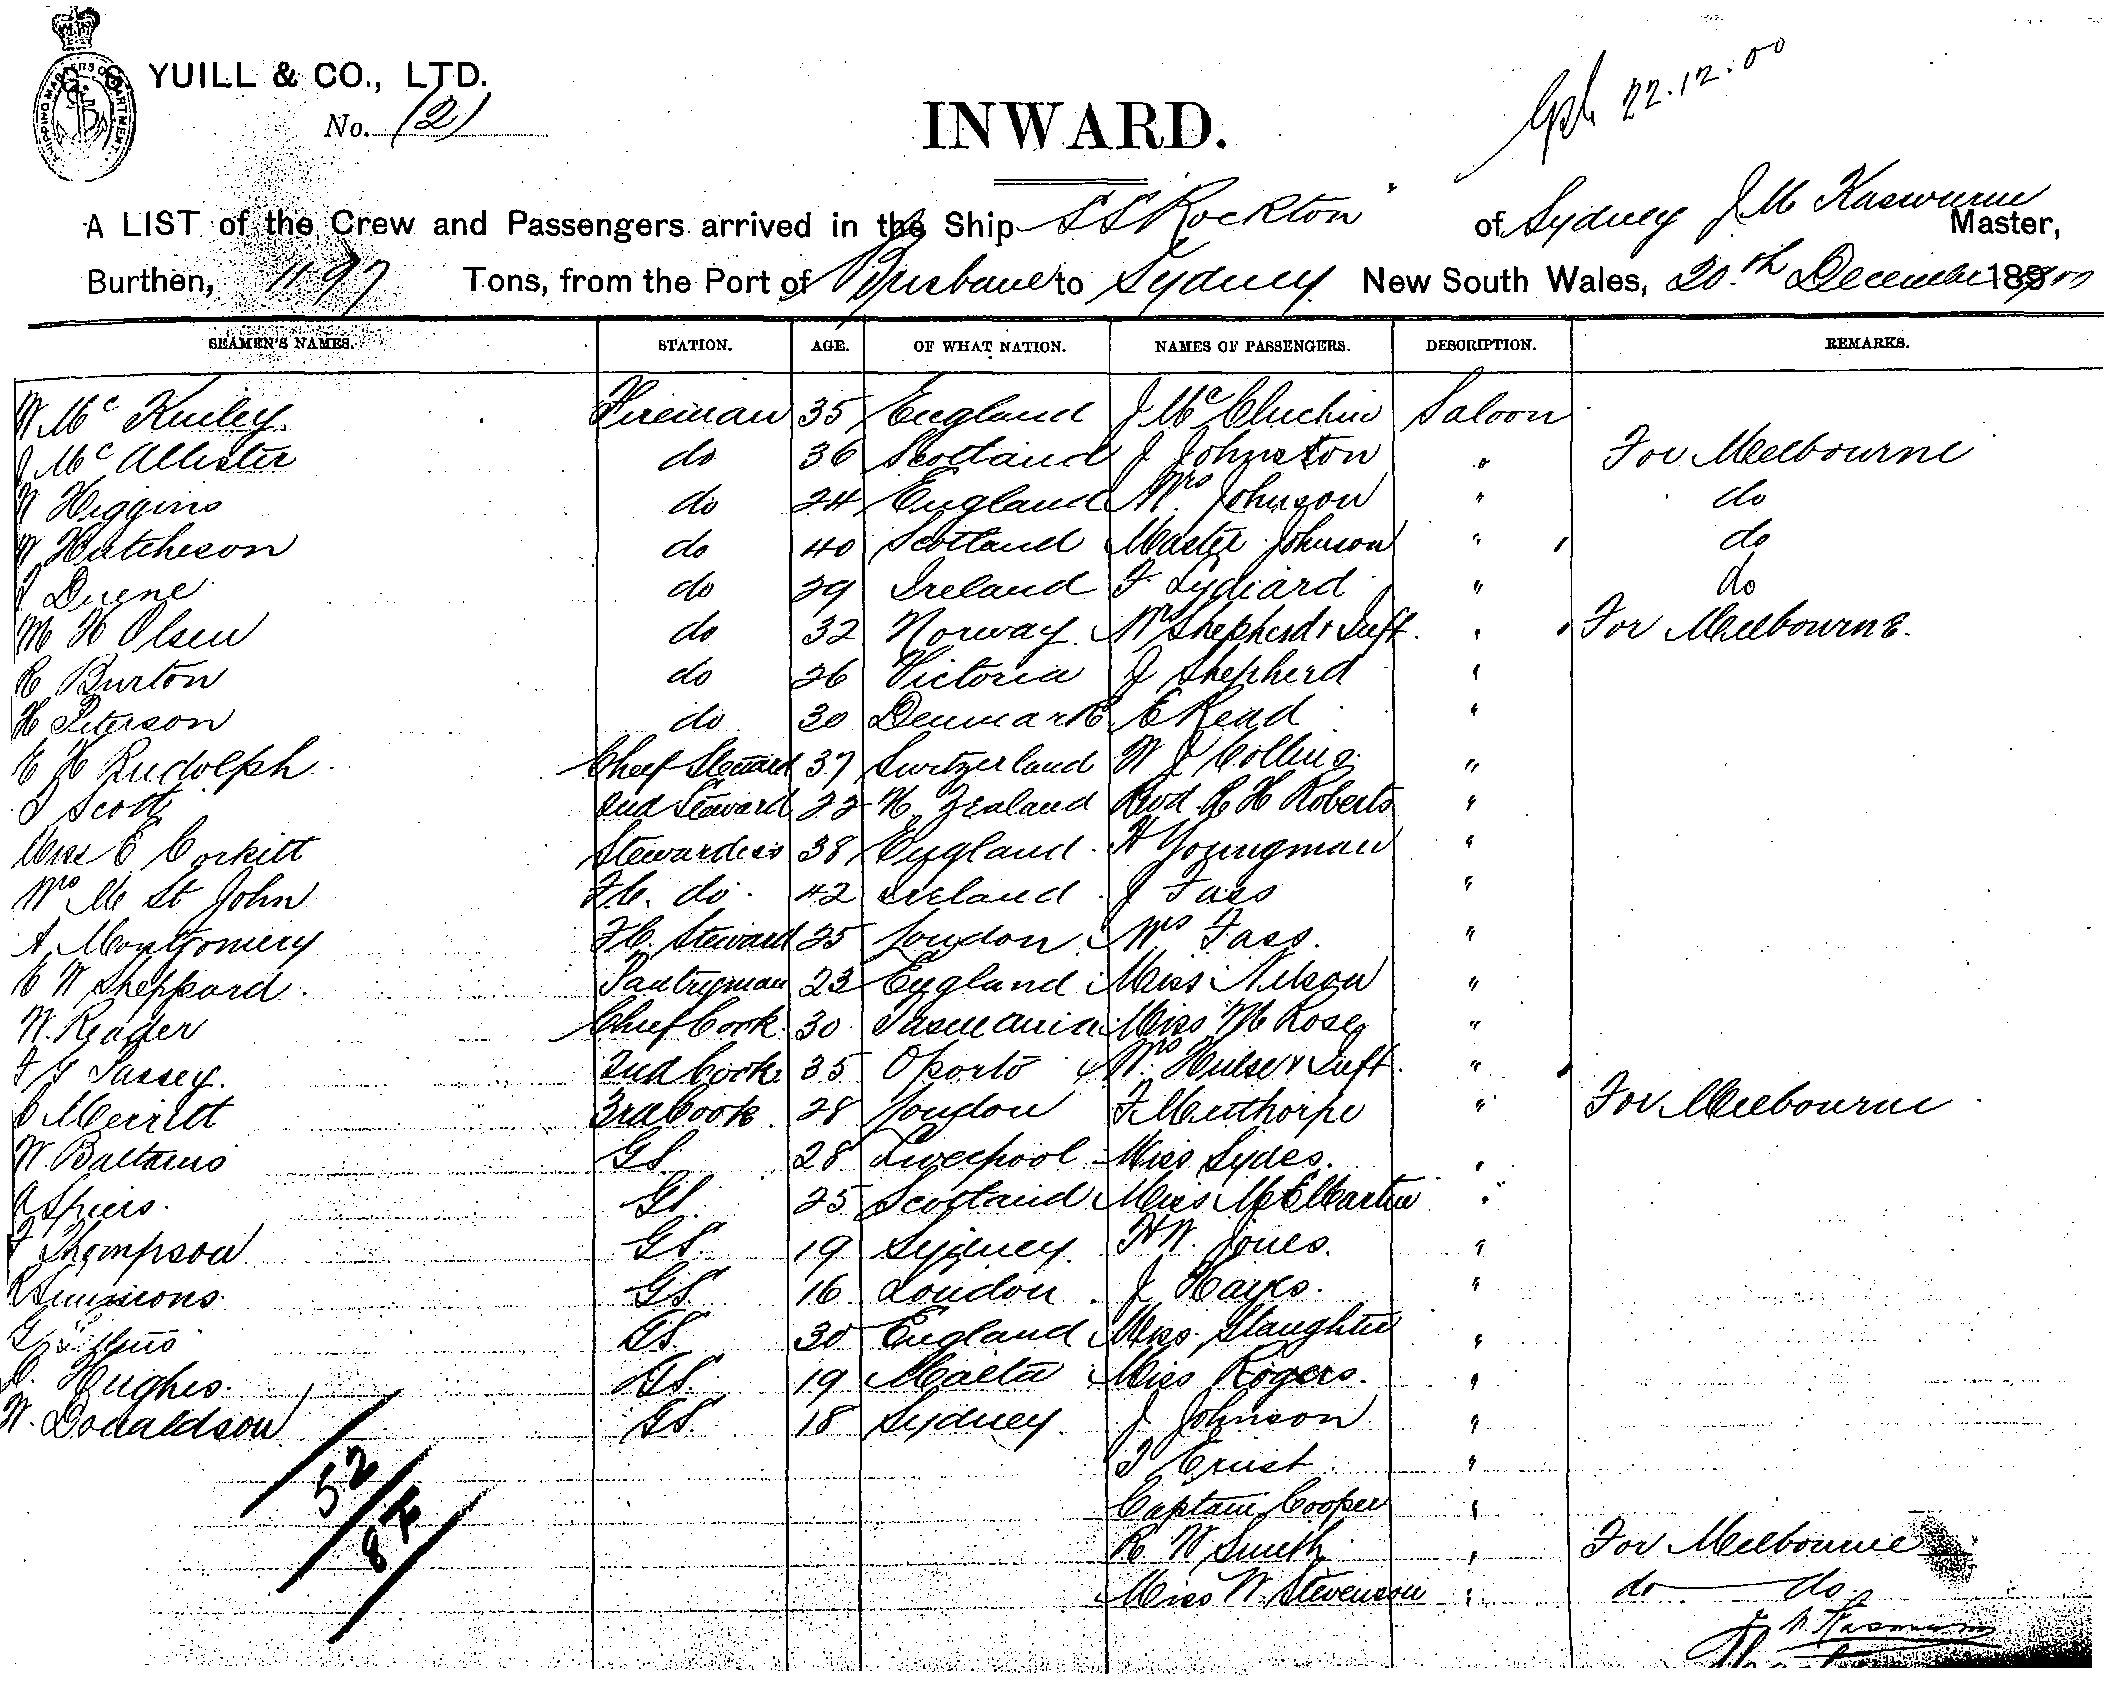 YUILL & CO., LTD.
No. (2)
22.12.00
INWARD.
A LIST of the Crew and Passengers arrived in the Ship SS Rockton of Sydney J M Master,
Burthen, 1197 Tons, from the Port of Brisbane to Sydney New South Wales, 20th December 1900
SEAMEN'S NAMES. STATION. AGE. OF WHAT NATION. NAMES OF PASSENGERS. DESCRIPTION. REMARKS.
W Mc Fireman 35 England J McCluchin Saloon
J McAllister do 36 Scotland J Johnston " For Melbourne
Higgins do 24 England Mrs Johnson " do
Hutcheson do 40 Scotland Master Johnson " do
do 29 Ireland F Lydiard " do
M H Olsen do 32 Norway Mrs Shepherd & Inft. " For Melbourne.
R Burton do 26 Victoria J Shepherd "
H Peterson do 30 Denmark E Read "
E H Rudolph Chief Steward 37 Switzerland W J Collins "
Scott 2nd Steward 22 N Zealand Revd R H Roberts "
Miss E Corkitt Stewardess 38 England H Youngman "
Mrs M St John F.C. do 42 Ireland J Fass "
A Montgomery F.C. Steward 25 London Mrs Fass. "
E W Sheppard. Pantryman 23 England Miss Nelson "
W. Reader Chief Cook 30 Tasmania Miss M Rose "
2nd Cook 35 Oporto Mrs Hulse & Inft. "
Merritt 3rd Cook 28 London F Menthorpe " For Melbourne
W. GS. 28 Liverpool Miss Sydes. "
A Spiers. GS. 25 Scotland Miss "
Thompson GS. 19 Sydney. H W. Jones. "
R Simmons GS 16 London J Hayes. "
GS. 30 England Miss Slaughter "
Hughes. GS. 19 Malta Miss Rogers. "
W. Donaldson GS. 18 Sydney J Johnson "
Ernst "
Captain Cooper "
52
84
R W Smith " For Melbourne
Miss W. Stevenson " do do